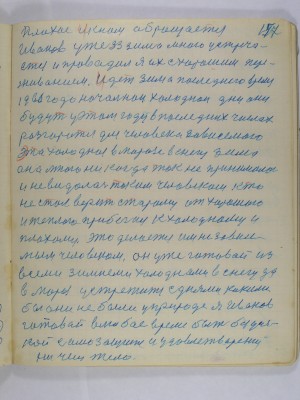 157
Плохое Иконом обращается
Иванов уже 33 зима много встреча-
ет и провадил я их с хорошим пере-
живанием. Идет зима последнего время
1966 года началном холодном дню они
будут у этом году в последних числах
для человека зависемого
Эта холодная в морозе в снегу зима
она много никогда так не принималася
и не видалася таким человеком кто
не стал верить старому от хорошого
и теплого прибегну к холодному и
плохому. Это делается им независи-
мым человеком, он уже готовай из
всеми зимнеми холодками в снегу да
в мороз устретить с днями какими
бы они не были у природе я Иванов
готовай в любое время быть будил-
кой самозащиты и удовлетворену-
ри чем тело.